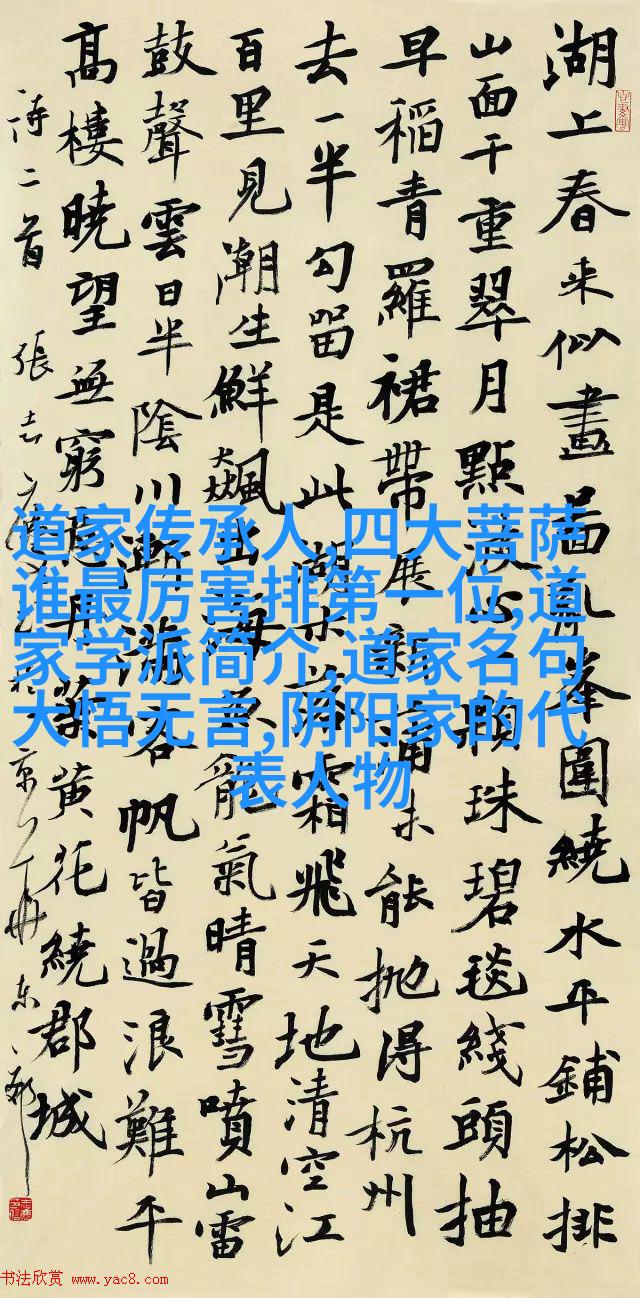 湖上春来似畫啚亂峯圍繞水平鋪松排
山面千重翠月點波心一顆珠碧毯綫頭抽
早稻青羅裙帶展新蒲未能抛得杭州
去一半勾留是此湖木落霜飛天地清空江
百里見潮生鮮飈出海魚龍氣晴雪噴山雷
鼓聲雲日半陰川漸滿客帆皆過浪難平
高樓曉望無窮意丹葉黄花繞郡城
詩二首 張志
道家传承人,四大菩萨
谁最厉害排第一位,道
家学派简介,道家名句
大悟无言,阴阳家的代
表人物
书法欣赏 www.yac8.com